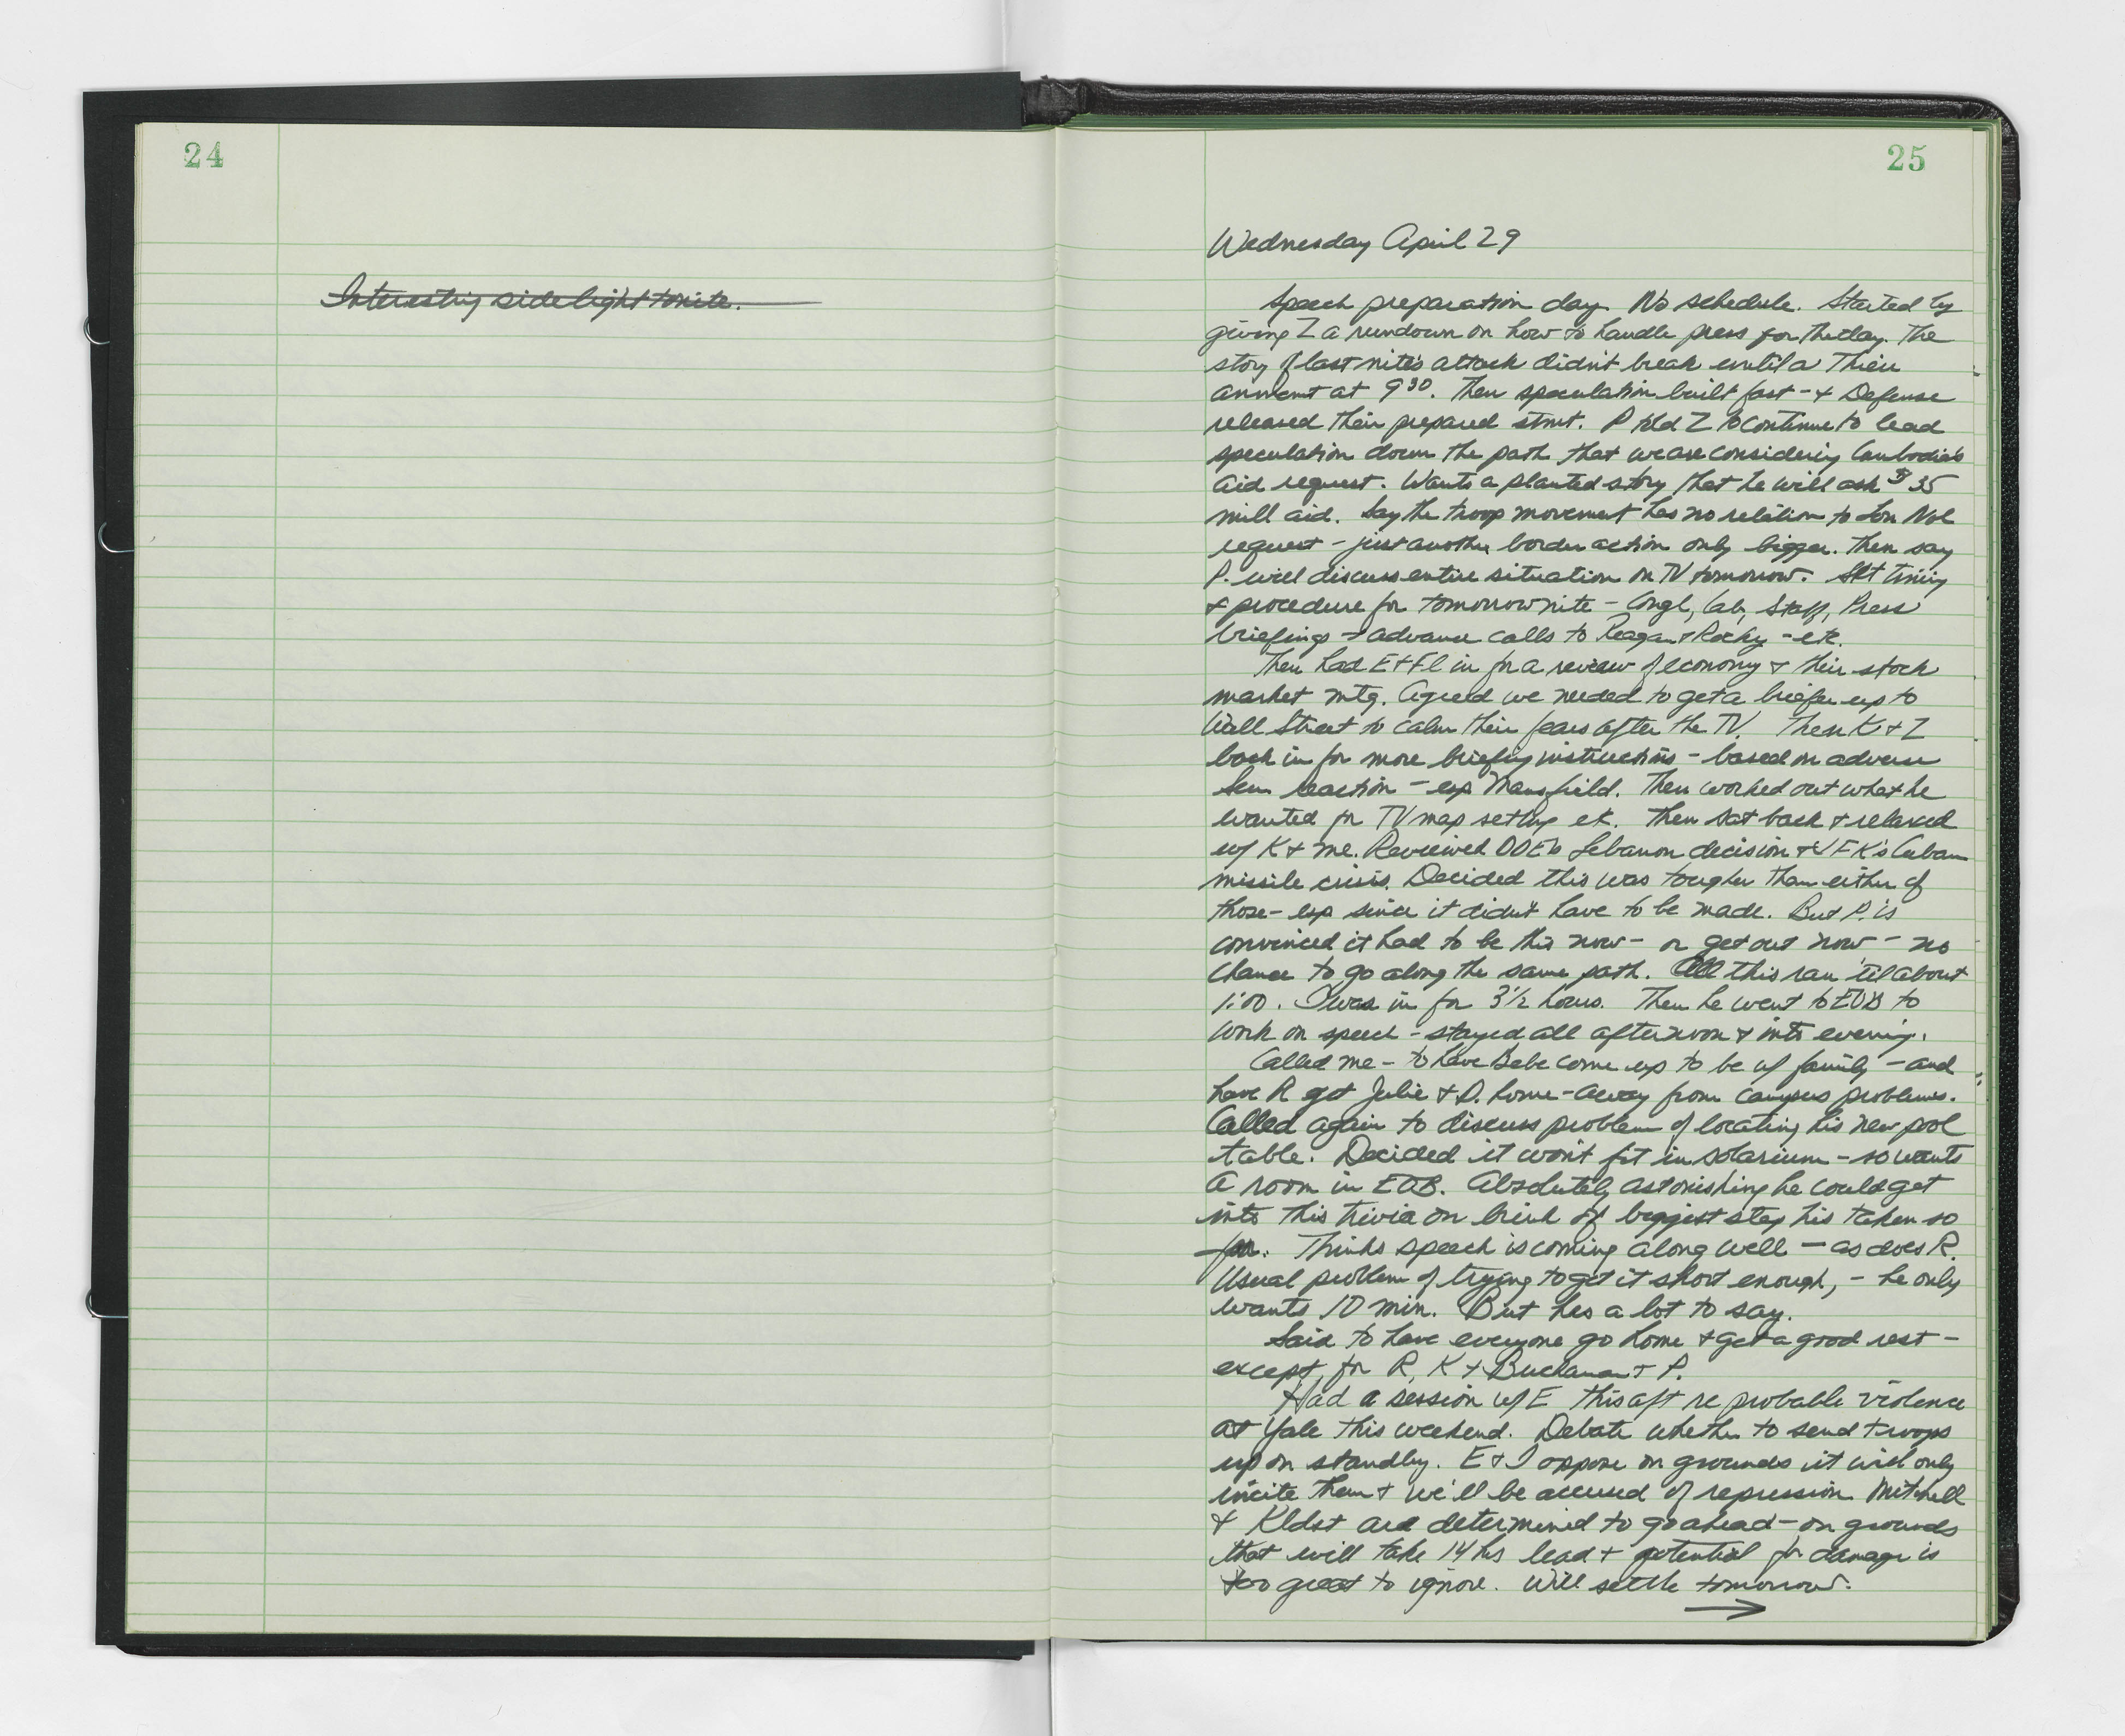 24
Interesting sidelight tonite.
25
Wednesday April 29
Speech preparation day. No schedule. Started by
giving Z a rundown on how to handle press for the day. The
story of last nite's attack didn't break until a Thieu
anncmt at 9³⁰. Then speculation built fast - & Defense
released their prepared stmt. P told Z to continue to lead
speculation down the path that we are considering Cambodia's
aid request. Wants a planted story that he will ask $35
mill aid. Say the troop movement has no relation to Lon Nol
request - just another border action only bigger. Then say
P. will discuss entire situation on TV tomorrow. Set timing
& procedure for tomorrow nite - Congl, Cab, Staff, Press
briefings - advance calls to Reagan & Rocky - etc.
Then had E & Fl in for a review of economy & their stock
market mtg. Agreed we needed to get a briefer up to
Wall Street to calm their fears after the TV. Then K & Z
back in for more briefing instructions - based on adverse
Sen reaction - esp Mansfield. Then worked out what he
wanted for TV map setup etc. Then sat back & relaxed
w/ K & me. Reviewed DDE's Lebanon decision & JFK's Cuban
missile crisis. Decided this was tougher than either of
those - esp since it didn't have to be made. But P. is
convinced it had to be this now - or get out now - no
chance to go along the same path. All this ran 'til about
1:00. I was in for 3½ hours. Then he went to EOB to
work on speech - stayed all afternoon & into evening.
Called me - to have Bebe come up to be w/ family - and
have R get Julie & D. home - away from campus problems.
Called again to discuss problem of locating his new pool
table. Decided it won't fit in solarium - so wants
a room in EOB. Absolutely astonishing he could get
into this trivia on brink of biggest step he's taken so
far. Thinks speech is coming along well - as does R.
Usual problem of trying to get it short enough, - he only
wants 10 min. But has a lot to say.
Said to have everyone go home & get a good rest -
except for R, K & Buchanan & P.
Had a session w/ E this aft re probable violence
at Yale this weekend. Debate whether to send troops
up on standby. E & I oppose on grounds it will only
incite them & we'll be accused of repression. Mitchell
& Kldst are determined to go ahead - on grounds
that will take 14 hrs lead & potential for damage is
too great to ignore. Will settle tomorrow.
→